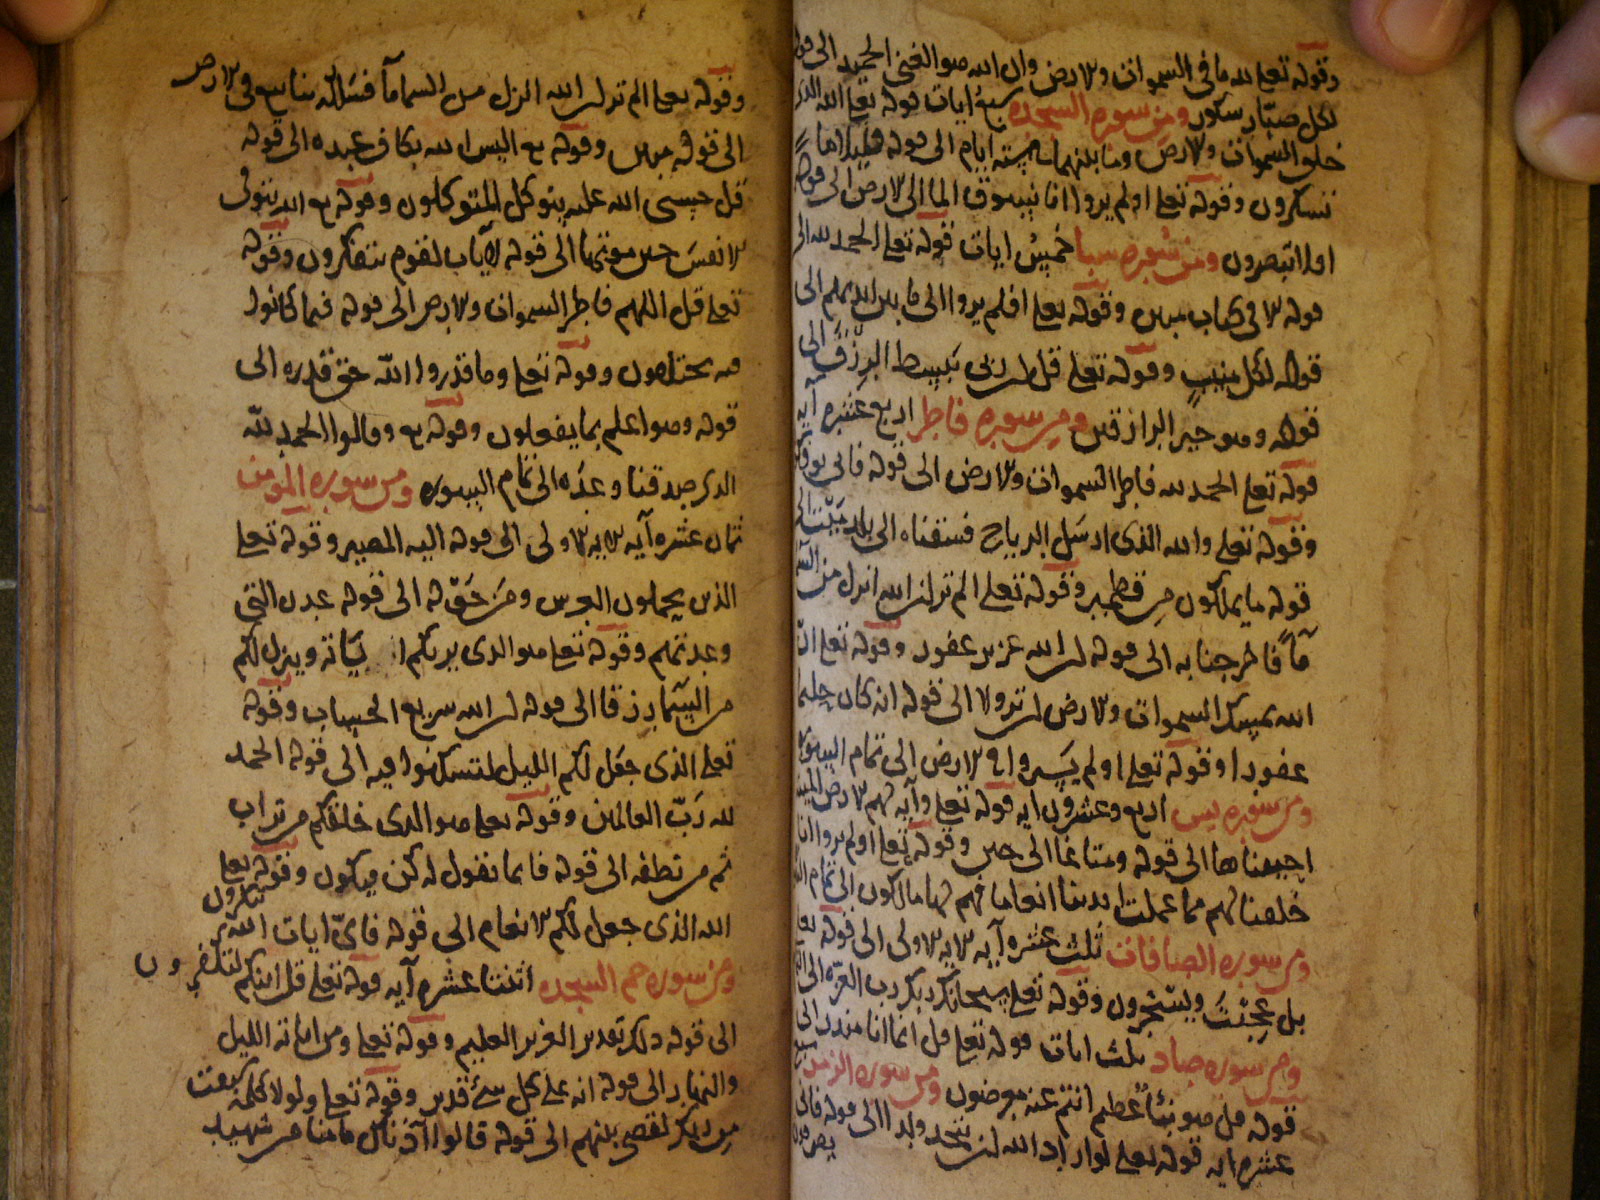 وقوله تعلى لله ما في السموات والارض وان الله هو الغني الحميد الى قوله
لكل صبار شكور ومن سوره السجده سبع ايات قوله تعلى الله الذي
خلق السموات والارض وما بينهما في سته ايام الى قوله قليلا ما
تشكرون وقوله تعلى اولم يروا انا نسوق الما الى الارض الى قوله
افلا تبصرون ومن سوره سبا خمس ايات قوله تعلى الحمد لله الى
قوله الا في كتاب مبين وقوله تعلى افلم يروا الى ما بين ايديهم الى
قوله لكل منيب وقوله تعلى قل ان ربي يبسط الرزق الى
قوله وهو خير الرازقين ومن سوره فاطر اربع عشره آيه
قوله تعلى الحمد لله فاطر السموات والارض الى قوله فانى توفكون
وقوله تعلى والله الذي ارسل الرياح فسقناه الى بلد ميت الى
قوله ما يملكون من قطمير وقوله تعلى الم تر ان الله انزل من السما
مآ فاخرجنا به الى قوله ان الله عزيز غفور وقوله تعلى ان
الله يمسك السموات والارض ان تزولا الى قوله انه كان حليما
غفورا وقوله تعلى اولم يسيروا في الارض الى تمام السوره
ومن سوره يس اربع وعشرون ايه قوله تعلى وآيه لهم الارض الميته
احييناها الى قوله ومتاعا الى حين وقوله تعلى اولم يروا انا
خلقنا لهم مما عملت ايدينا انعاما فهم لها مالكون الى تمام
ومن سوره الصافات ثلث عشره آيه الايه الاولى الى قوله تعلى
بل عجبت ويسخرون وقوله تعلى سبحان ربك رب العزه الى
ومن سوره صاد ثلث ايات قوله تعلى قل انما انا منذر الى
قوله قل هو نبأ عظيم انتم عنه معرضون ومن سوره الزمر سبع
عشره ايه قوله تعلى لو اراد الله ان يتخذ ولدا الى قوله فانى
تصرفون
وقوله تعلى الم تر ان الله انزل من السما مآ فسلكه ينابيع في الارض
الى قوله مبين وقوله تع اليس الله بكاف عبده الى قوله
قل حسبي الله عليه يتوكل المتوكلون وقوله تع الله يتوفى
الانفس حين موتها الى قوله لآيات لقوم يتفكرون وقوله
تعلى قل اللهم فاطر السموات والارض الى قوله فيما كانوا
فيه يختلفون وقوله تعلى وما قدروا الله حق قدره الى
قوله وهو اعلم بما يفعلون وقوله تع وقالوا الحمد لله
الذي صدقنا وعده الى تمام السوره ومن سوره المومن
ثمان عشره آيه الايه الاولى الى قوله اليه المصير وقوله تعلى
الذين يحملون العرش ومن حوله الى قوله عدن التي
وعدتهم وقوله تعلى هو الذي يريكم اياته وينزل لكم
من السماء رزقا الى قوله ان الله سريع الحساب وقوله
تعلى الذي جعل لكم الليل لتسكنوا فيه الى قوله الحمد
لله رب العالمين وقوله تعلى هو الذي خلقكم من تراب
ثم من نطفه الى قوله فانما يقول له كن فيكون وقوله تعلى
الله الذي جعل لكم الانعام الى قوله فاي ايات الله تنكرون
ومن سوره حم السجده اثنتا عشره آيه قوله تعلى قل ائنكم لتكفرون
الى قوله ذلك تقدير العزيز العليم وقوله تعلى ومن اياته الليل
والنهار الى قوله انه على كل شئ قدير وقوله تعلى ولولا كلمه سبقت
من ربك لقضي بينهم الى قوله قالوا آذناك ما منا من شهيد